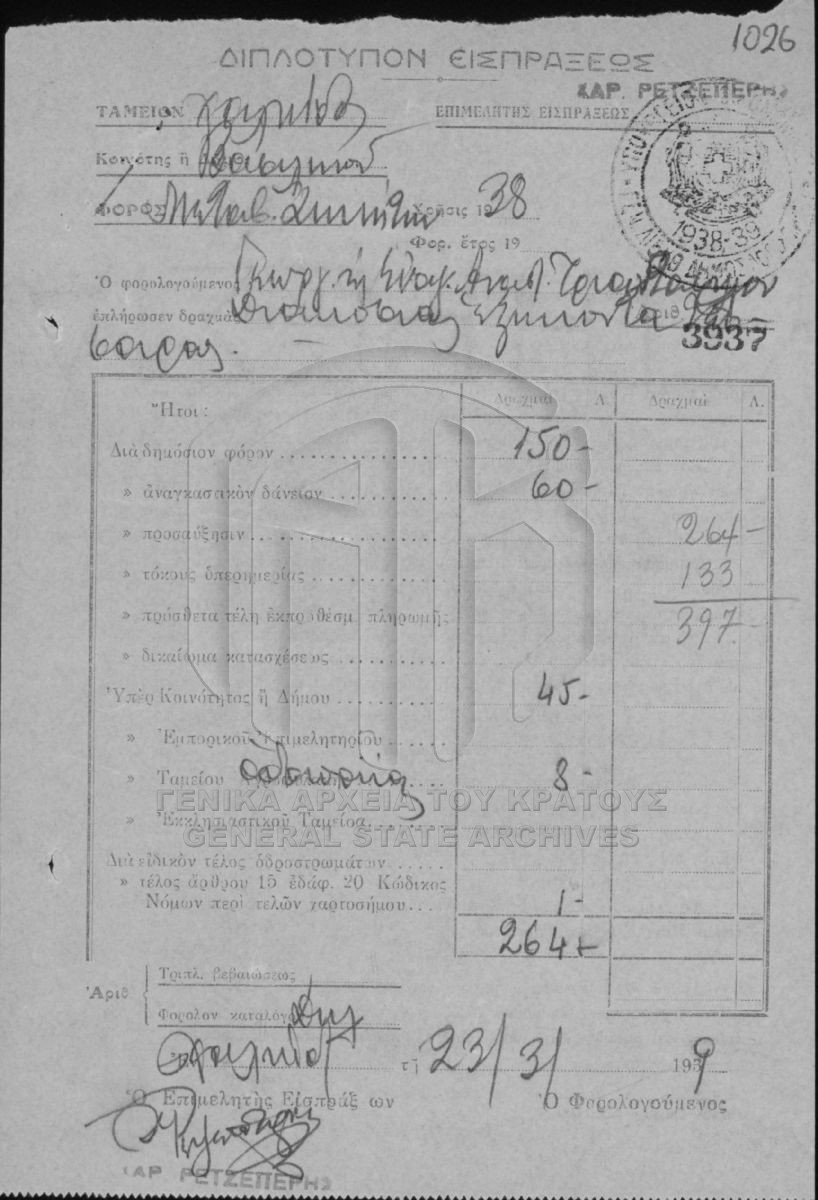 1026
ΔΙΠΛΟΤΥΠΟΝ ΕΙΣΠΡΑΞΕΩΣ
ΧΑΡ. ΡΕΤΖΕΠΕΡΗΣ
ΤΑΜΕΙΟΝ Χαλκίδος
ΕΠΙΜΕΛΗΤΗΣ ΕΙΣΠΡΑΞΕΩΣ
Κοινότης ἢ Βασιλικοῦ
ΦΟΡΟΣ Μεταβ. Χρῆσις 1938
1938-39
Φορ. ἔτος 19
Ὁ φορολογούμενος Γεωργ.
ἐπλήρωσεν δραχμὰς Διακοσίας Ἑξήκοντα
3937
Ἤτοι:
Δραχμαὶ Λ. Δραχμαὶ Λ.
Διὰ δημόσιον φόρον 150-
» ἀναγκαστικὸν δάνειον 60-
» προσαύξησιν 264-
» τόκους ὑπερημερίας 133
» πρόσθετα τέλη ἐκπροθέσμ. πληρωμῆς 397
» δικαίωμα κατασχέσεως
Ὑπὲρ Κοινότητος ἢ Δήμου 45-
» Ἐμπορικοῦ Ἐπιμελητηρίου
» Ταμείου 8-
ΓΕΝΙΚΑ ΑΡΧΕΙΑ ΤΟΥ ΚΡΑΤΟΥΣ
» Ἐκκλησιαστικοῦ Ταμείου
GENERAL STATE ARCHIVES
Διὰ εἰδικὸν τέλος ὁδροστρωμάτων
» τέλος ἄρθρου 15 ἐδάφ. 20 Κώδικος
Νόμων περὶ τελῶν χαρτοσήμου 1-
264
Ἀριθ.
Τριπλ. βεβαιώσεως
Φορολον καταλόγου
Χαλκίδι τῇ 23/3/1939
Ὁ Ἐπιμελητὴς Εἰσπράξ ων Ὁ Φορολογούμενος
ΧΑΡ. ΡΕΤΖΕΠΕΡΗΣ